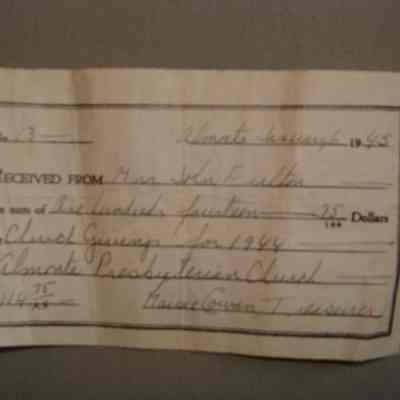 No. 3 Almonte 1945
RECEIVED FROM Mrs John Fulton
sum of hundred fourteen 75/100 Dollars
Church Givings for 1944
Almonte Presbyterian Church
114 75/xx Treasurer